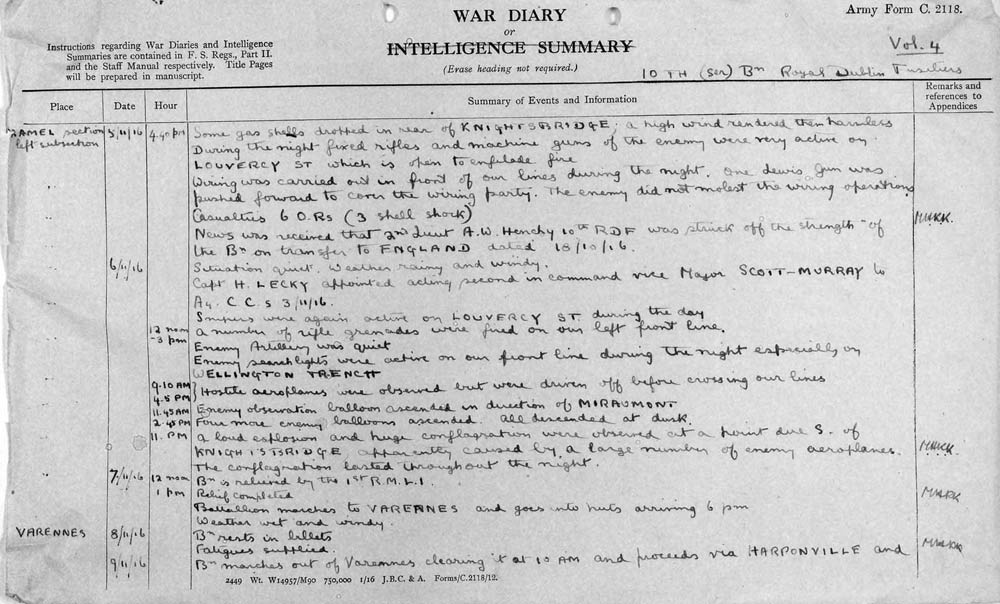 Army Form C. 2118.
WAR DIARY
or
INTELLIGENCE SUMMARY
(Erase heading not required.)
Instructions regarding War Diaries and Intelligence
Summaries are contained in F. S. Regs., Part II.
and the Staff Manual respectively. Title Pages
will be prepared in manuscript.
Vol. 4
10TH (Ser) Bn Royal Dublin Fusiliers
Place Date Hour Summary of Events and Information Remarks and references to Appendices
HAMEL section 5/11/16 4.40 pm Some gas shells dropped in rear of KNIGHTSBRIDGE; a high wind rendered them harmless
left subsection During the night fixed rifles and machine guns of the enemy were very active on
LOUVERCY ST which is open to enfilade fire
Wiring was carried out in front of our lines during the night. One Lewis Gun was
pushed forward to cover the wiring party. The enemy did not molest the wiring operations
Casualties 6 O.Rs (3 shell shock)
News was received that 2nd Lieut A.W. Henchy 10th RDF was struck off the strength of
the Bn on transfer to ENGLAND dated 18/10/16.
6/11/16 Situation quiet. Weather rainy and windy.
Capt H. LECKY appointed acting second in command vice Major SCOTT-MURRAY to
C.C.S 3/11/16.
Snipers were again active on LOUVERCY ST during the day
12 noon A number of rifle grenades were fired on our left front line.
-3 pm Enemy Artillery was quiet
Enemy searchlights were active on our front line during the night especially on
WELLINGTON TRENCH
9.10 AM
4.5 PM } Hostile aeroplanes were observed but were driven off before crossing our lines
11.45 AM Enemy observation balloon ascended in direction of MIRAUMONT
2.45 PM Four more enemy balloons ascended. All descended at dusk.
11. PM A loud explosion and huge conflagration were observed at a point due S. of
KNIGHTSBRIDGE apparently caused by a large number of enemy aeroplanes.
The conflagration lasted throughout the night.
7/11/16 12 noon Bn is relieved by the 1st R.M.L.I.
1 pm Relief completed
Battallion marches to VARENNES and goes into huts arriving 6 pm
Weather wet and windy.
VARENNES 8/11/16 Bn rests in billets
Fatigues supplied.
9/11/16 Bn marches out of Varennes clearing it at 10 AM and proceeds via HARPONVILLE and
2449 Wt. W14957/M90 750,000 1/16 J.B.C. & A. Forms/C.2118/12.